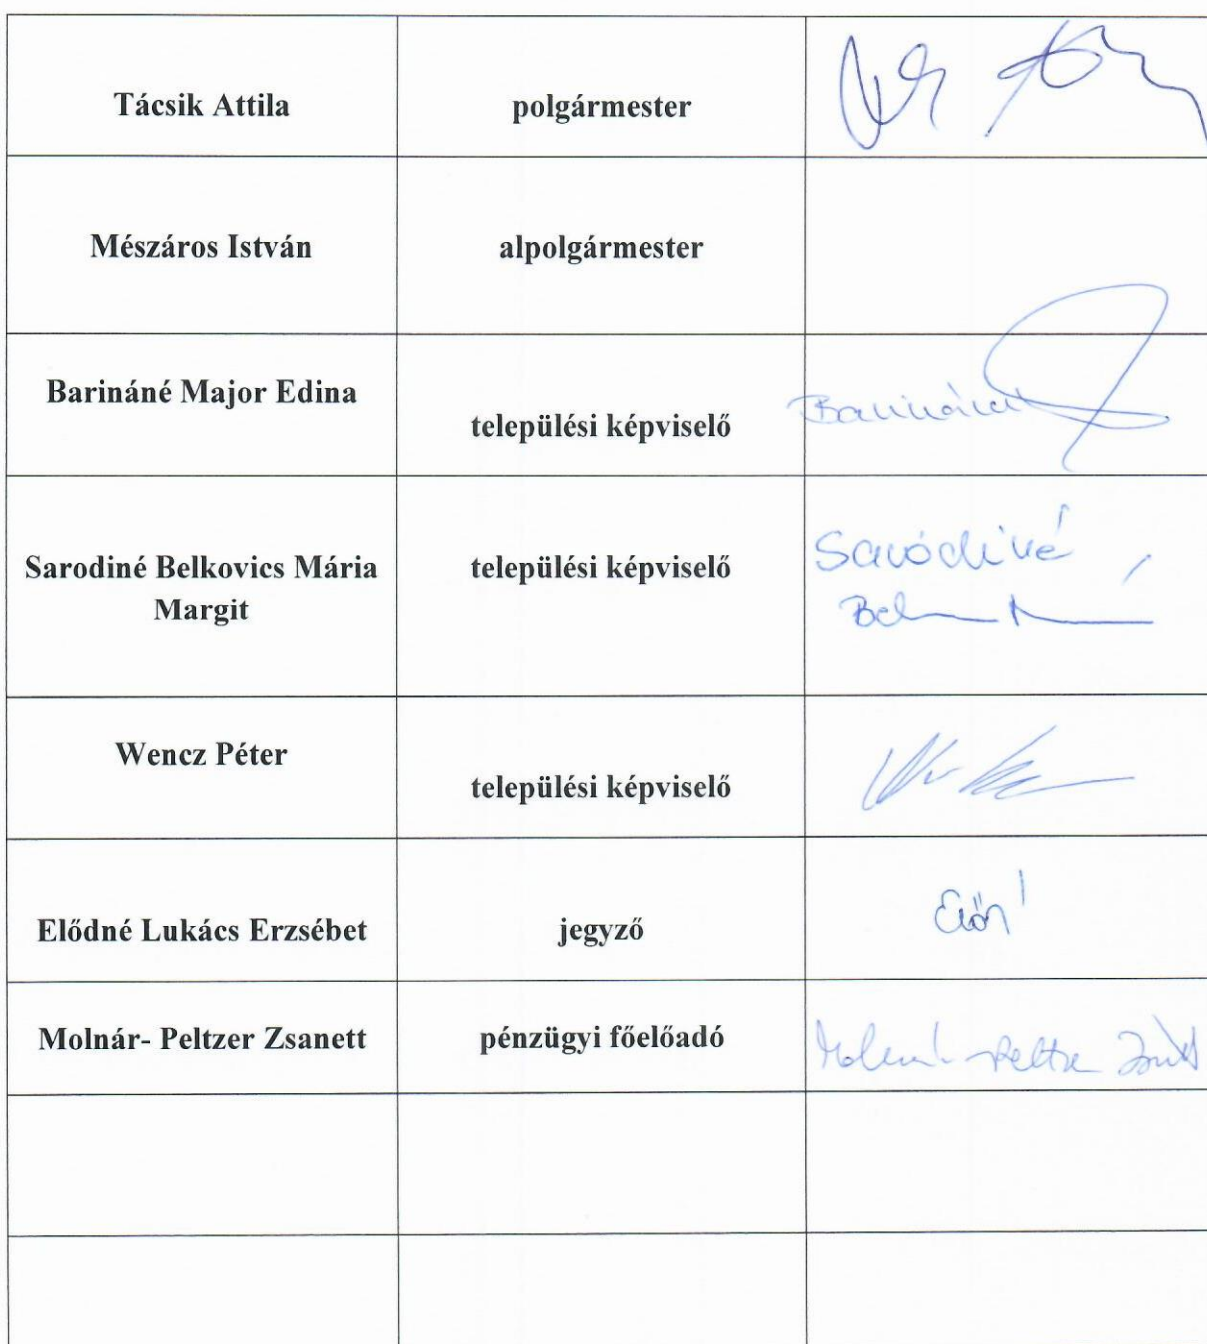 Tácsik Attila polgármester
Mészáros István alpolgármester
Barináné Major Edina
települési képviselő Barináné
Sarodiné Belkovics Mária települési képviselő Saródiné
Margit
Wencz Péter
települési képviselő
Elődné Lukács Erzsébet jegyző
Molnár- Peltzer Zsanett pénzügyi főelőadó Molnár-Peltzer Zsanett